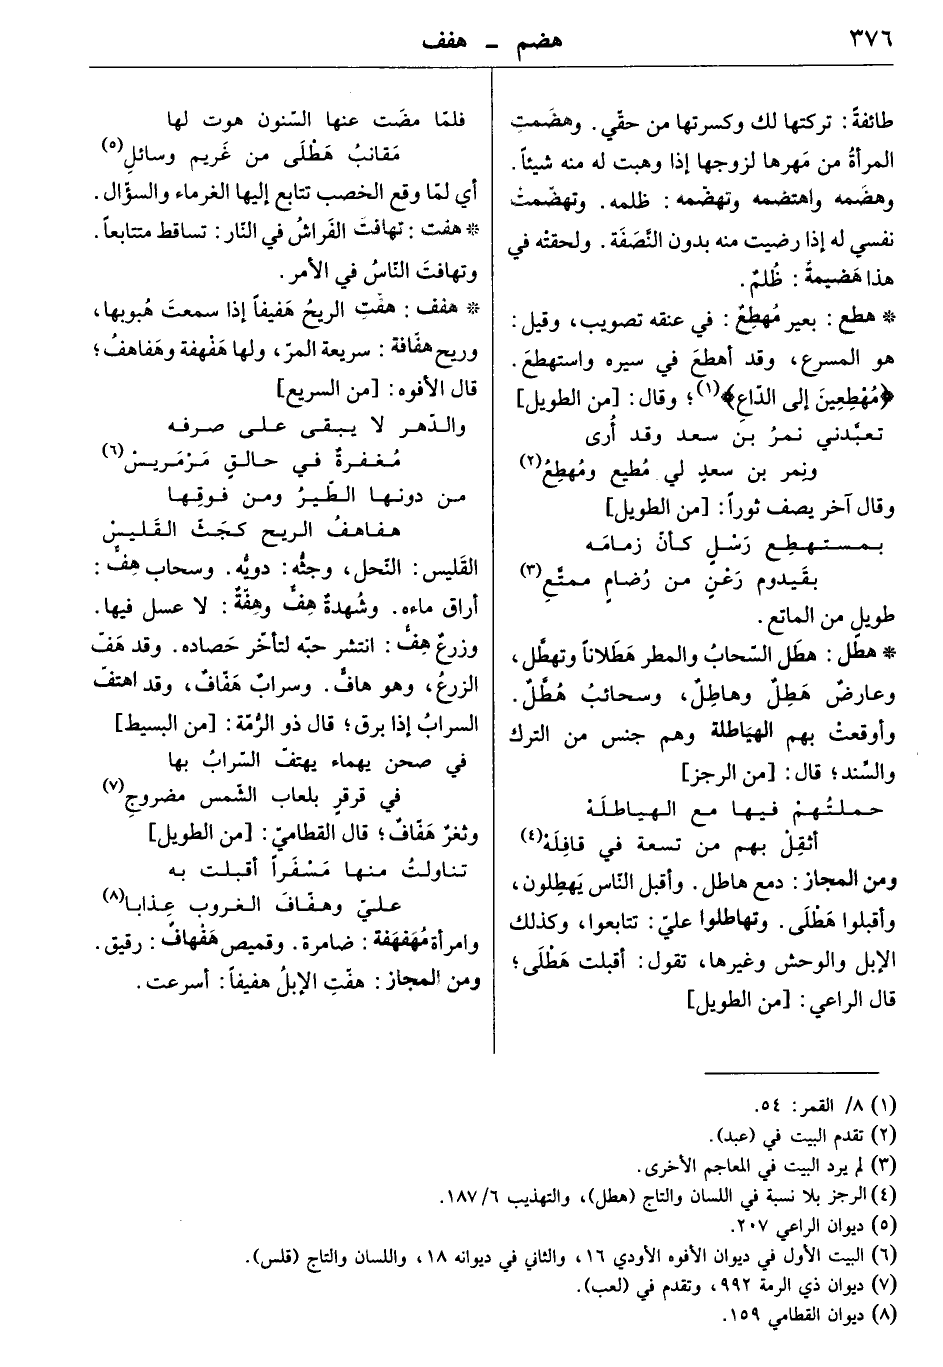 ٣٧٦
هضم ـ هفف
طائفةً: تركتها لك وكسرتها من حقّي. وهضَمتِ
المرأةُ من مَهرها لزوجها إذا وهبت له منه شيئاً.
وهضَمه واهتضمه وتهضّمه: ظلمه. وتهضّمتْ
نفسي له إذا رضيت منه بدون النَّصَفَة. ولحقتْه في
هذا هَضيمةٌ: ظُلمٌ.
* هطع: بعير مُهطِعٌ: في عنقه تصويب، وقيل:
هو المسرع، وقد أهطعَ في سيره واستهطعَ.
﴿مُهْطِعِينَ إلى الدّاعِ﴾(١)؛ وقال: [من الطويل]
تعبَّدني نمرُ بن سعد وقد أُرى
ونِمر بن سعدٍ لي مُطيع ومُهطِعُ(٢)
وقال آخر يصف ثوراً: [من الطويل]
بمستهطِعٍ رَسْلٍ كأنّ زمامَه
بقَيدوم رَعْنٍ من رُضامٍ ممتَّعِ(٣)
طويلٍ من الماتع.
* هطل: هطَل السّحابُ والمطر هَطَلاناً وتهطَّل،
وعارضٌ هَطِلٌ وهاطِلٌ، وسحائبُ هُطَّلٌ.
وأوقعتْ بهم الهَياطلة وهم جنس من الترك
والسِّند؛ قال: [من الرجز]
حملتُهمْ فيها مع الهياطلَهْ
أثقِلْ بهم من تسعة في قافِلَهْ(٤)
ومن المجاز: دمع هاطل. وأقبل النّاس يَهطِلون،
وأقبلوا هَطْلَى. وتهاطلوا عليّ: تتابعوا، وكذلك
الإبل والوحش وغيرها، تقول: أقبلت هَطْلَى؛
قال الراعي: [من الطويل]
فلمّا مضَت عنها السّنون هوت لها
مَقانبُ هَطْلَى من غَريم وسائلِ(٥)
أي لمّا وقع الخصب تتابع إليها الغرماء والسؤال.
* هفت: تهافتَ الفَراشُ في النّار: تساقط متتابعاً.
وتهافتَ النّاسُ في الأمر.
* هفف: هفّتِ الريحُ هَفيفاً إذا سمعتَ هُبوبها،
وريح هفّافة: سريعة المرّ، ولها هَفْهفة وهَفاهفُ؛
قال الأفوه: [من السريع]
والدّهر لا يبقى على صرفه
مُغفرةٌ في حالقٍ مَرْمَريسْ(٦)
من دونها الطّيرُ ومن فوقِها
هفاهفُ الريح كجَثّ القَليسْ
القَليس: النّحل، وجثُّه: دويُّه. وسحاب هِفٌّ:
أراق ماءه. وشُهدةٌ هِفٌّ وهِفّةٌ: لا عسل فيها.
وزرعٌ هِفٌّ: انتشر حبّه لتأخّر حَصاده. وقد هَفّ
الزرعُ، وهو هافٌّ. وسرابٌ هَفّافٌ، وقد اهتفّ
السرابُ إذا برق؛ قال ذو الرُّمّة: [من البسيط]
في صحن يهماء يهتفّ السّرابُ بها
في قرقرٍ بلعاب الشّمس مضروجِ(٧)
وثغرٌ هَفّافٌ؛ قال القطاميّ: [من الطويل]
تناولتُ منها مَسْفَراً أقبلت به
عليّ وهفّافَ الغروب عِذابا(٨)
وامرأة مُهَفهَفة: ضامرة. وقميص هَفْهافٌ: رقيق.
ومن المجاز: هفّتِ الإبلُ هفيفاً: أسرعت.
(١) ٨/ القمر: ٥٤.
(٢) تقدم البيت في (عبد).
(٣) لم يرد البيت في المعاجم الأخرى.
(٤) الرجز بلا نسبة في اللسان والتاج (هطل)، والتهذيب ٦/ ١٨٧.
(٥) ديوان الراعي ٢٠٧.
(٦) البيت الأول في ديوان الأفوه الأودي ١٦، والثاني في ديوانه ١٨، واللسان والتاج (قلس).
(٧) ديوان ذي الرمة ٩٩٢، وتقدم في (لعب).
(٨) ديوان القطامي ١٥٩.